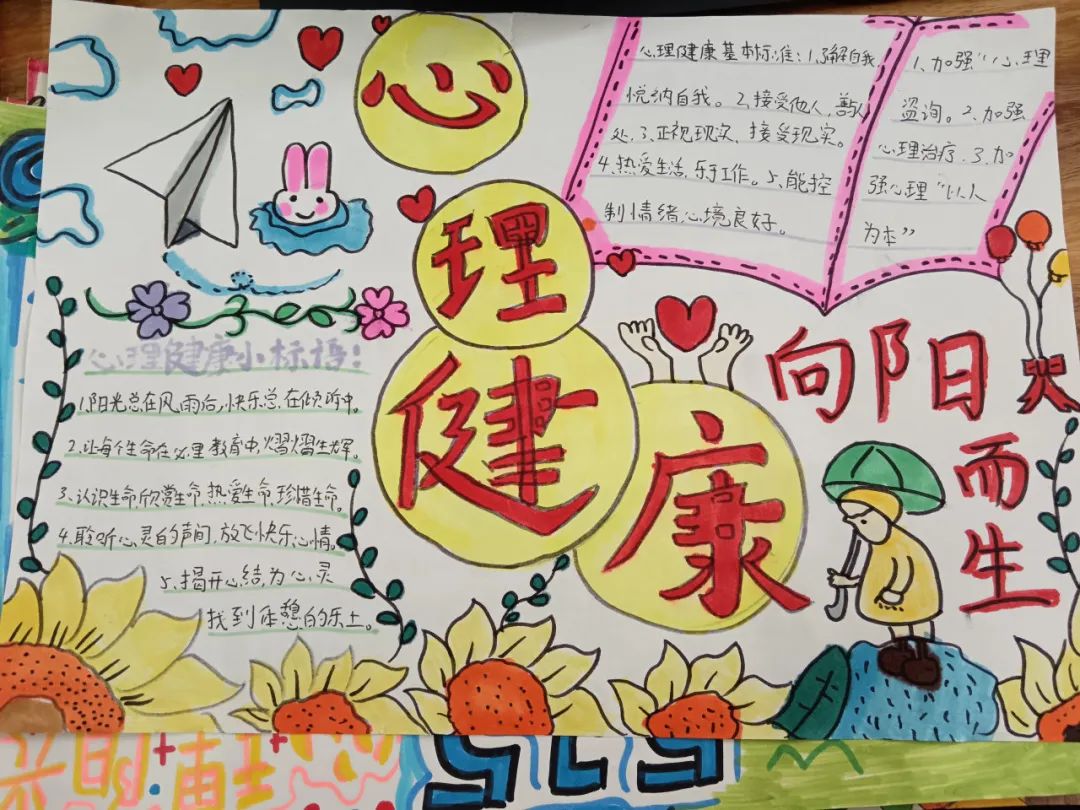 心理健康
心理健康基本标准：1.了解自我
悦纳自我。2.接受他人，善人
处。3.正视现实，接受现实。
4.热爱生活，乐于工作。5.能控
制情绪，心境良好。
1.加强“心理
咨询。2.加强
心理治疗。3.加
强心理“以人
为本”
向阳
而生
心理健康小标语：
1.阳光总在风雨后，快乐总在倾听中。
2.让每个生命在心里教育中，熠熠生辉。
3.认识生命，欣赏生命，热爱生命，珍惜生命。
4.聆听心灵的声间，放飞快乐心情。
5.揭开心结，为心灵
找到休憩的乐土。